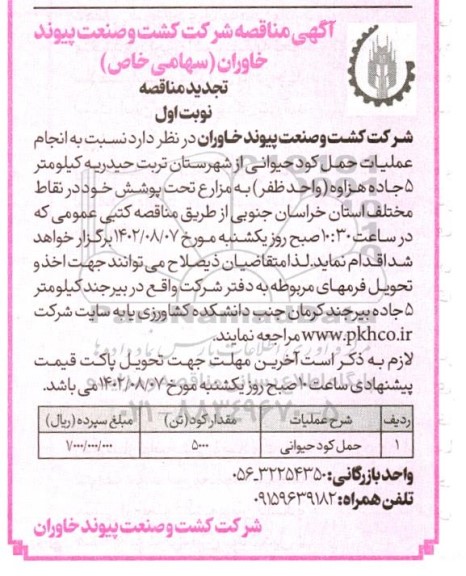 آگهی مناقصه شرکت کشت و صنعت پیوند
خاوران (سهامی خاص)
تجدید مناقصه
نوبت اول
شرکت کشت و صنعت پیوند خاوران در نظر دارد نسبت به انجام
عملیات حمل کود حیوانی از شهرستان تربت حیدریه کیلومتر
۵ جاده هزاوه (واحد ظفر) به مزارع تحت پوشش خود در نقاط
مختلف استان خراسان جنوبی از طریق مناقصه کتبی عمومی که
در ساعت ۱۰:۳۰ صبح روز یکشنبه مورخ ۱۴۰۲/۰۸/۰۷ برگزار خواهد
شد اقدام نماید. لذا متقاضیان ذیصلاح می توانند جهت اخذ و
تحویل فرمهای مربوطه به دفتر شرکت واقع در بیرجند کیلومتر
۵ جاده بیرجند کرمان جنب دانشکده کشاورزی یا به سایت شرکت
www.pkhco.ir مراجعه نمایند.
لازم به ذکر است آخرین مهلت جهت تحویل پاکت قیمت
پیشنهادی ساعت ۱۰ صبح روز یکشنبه مورخ ۱۴۰۲/۰۸/۰۷ می باشد.
ردیف شرح عملیات مقدار کود (تن) مبلغ سپرده (ریال)
۱ حمل کود حیوانی ۵۰۰۰ ۷۰۰۰/۰۰۰/۰۰۰
واحد بازرگانی: ۳۲۲۵۴۳۵۰-۰۵۶
تلفن همراه: ۰۹۱۵۹۶۳۹۱۸۲
شرکت کشت و صنعت پیوند خاوران
ParsNamadData
۰۲۱-۸۸۳۴۹۶۷۰-۵